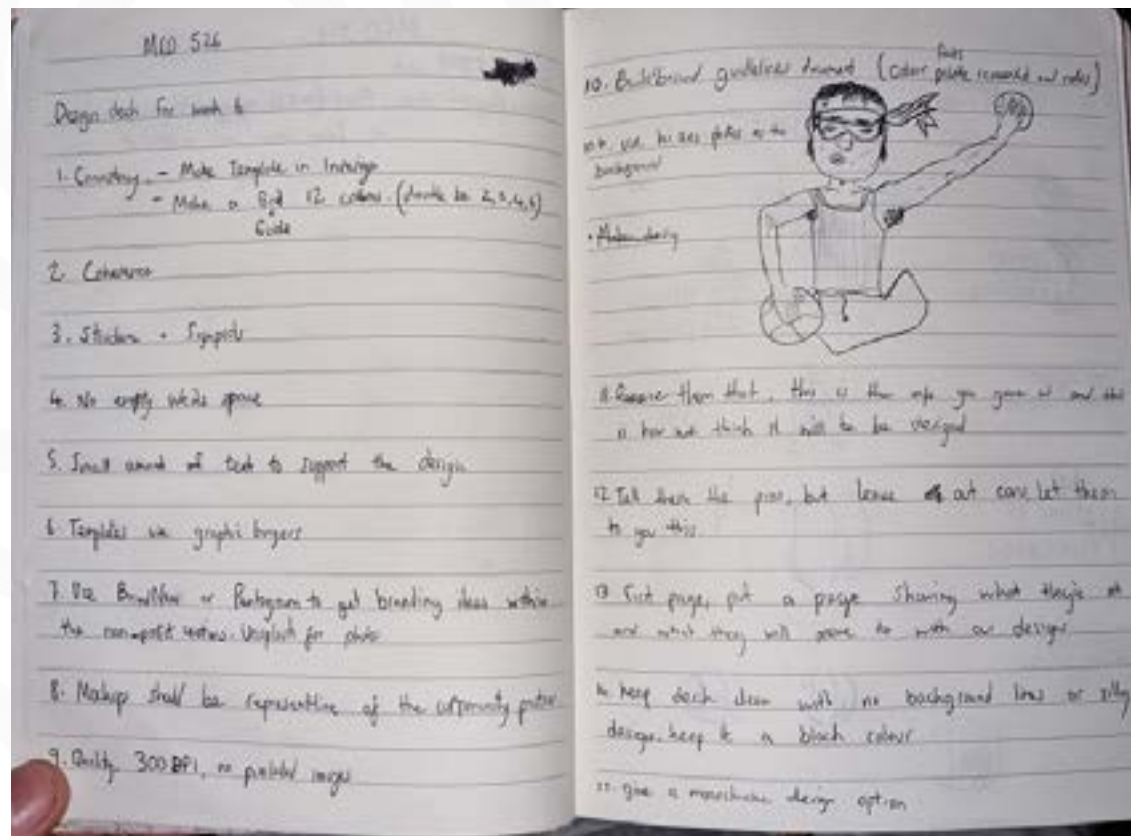 MCO 526
Design deck for week 6
1. Consistency. - Make Template in Indesign
- Make a Grid 12 colums. (divide by 2,3,4,6)
Guide
2. Coherence
3. Structure +
4. No empty white space
5. Small amount of text to support the design
6. Templates use graphic
7. Use BrandNew or Pentagram to get branding ideas within
the non-profit sectors. Unsplash for photo
8. Mockup should be representitive of the community partner
9. Quality. 300 DPI, no pixelated images
Fonts
10. Build brand guidelines document (colour palete and rules)
use photos as the
background
• Modern design
11. them that, this is the info you gave us and this
is how we think it will to be designed
12. Tell them the pros, but leave out cons, let them
to you this.
13 First page, put a page Sharing what they're at
and what they will to with our designs
14. keep deck clean with no background lines or silly
design. keep it a black colour
15. give a monochrome design option